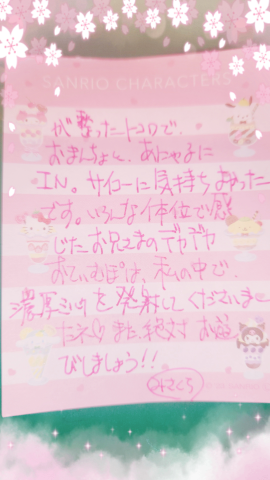 SANRIO CHARACTERS
が整ったトコロで、
おまんちょに、あにゃるに
IN。サイコーに気持ちよかった
です。いろんな体位で感
じたお兄さまのデカデカ
おてぃむぽは、私の中で、
濃厚ミルクを発射してくださいまし
たネ♡また、絶対お遊
びしましょう!!